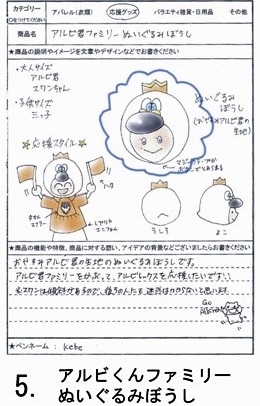 カテゴリー
○をつけてください
アパレル(衣類)
応援グッズ
バラエティ雑貨・日用品
その他
商品名
アルビ君ファミリーぬいぐるみぼうし
★商品の説明やイメージを文章やデザインなどでお書きください
・大人サイズ
アルビ君
スワンちゃん
・子供サイズ
三ッ子
ぬいぐるみ
ぼうし
(おやすみアルビ君の
生地)
★応援スタイル★
うしろ
よこ
★商品の機能や特徴、商品に対する想い、アイデアの背景などございましたらお書きください
おやすみアルビ君の生地のぬいぐるみぼうしです。
アルビ君ファミリーをかぶって、アルビレックスを応援したいです!!
GO
★ペンネーム:
5.
アルビくんファミリー
ぬいぐるみぼうし